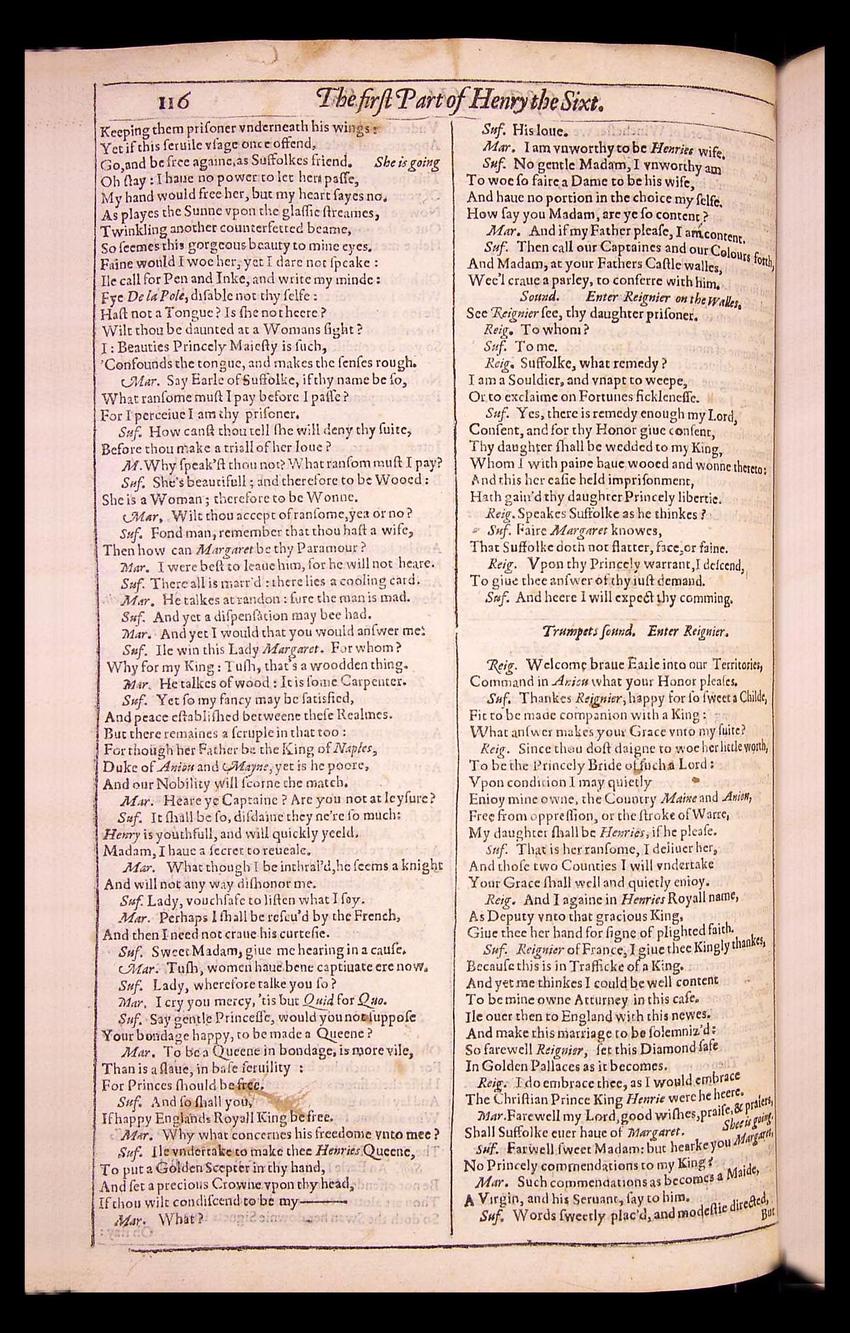 116
The first Part of Henry the Sixt.
Keeping them prisoner vnderneath his wings:
Yet if this seruile vsage once offend,
Go, and be free againe, as Suffolkes friend. She is going
Oh stay: I haue no power to let her passe,
My hand would free her, but my heart sayes no.
As playes the Sunne vpon the glassie streames,
Twinkling another counterfetted beame,
So seemes this gorgeous beauty to mine eyes.
Faine would I woe her, yet I dare not speake:
Ile call for Pen and Inke, and write my minde:
Fye De la Pole, disable not thy selfe:
Hast not a Tongue? Is she not heere?
Wilt thou be daunted at a Womans sight?
I: Beauties Princely Maiesty is such,
'Confounds the tongue, and makes the senses rough.
Mar. Say Earle of Suffolke, if thy name be so,
What ransome must I pay before I passe?
For I perceiue I am thy prisoner.
Suf. How canst thou tell she will deny thy suite,
Before thou make a triall of her loue?
M. Why speak'st thou not? What ransom must I pay?
Suf. She's beautifull; and therefore to be Wooed:
She is a Woman; therefore to be Wonne.
Mar. Wilt thou accept of ransome, yea or no?
Suf. Fond man, remember that thou hast a wife,
Then how can Margaret be thy Paramour?
Mar. I were best to leaue him, for he will not heare.
Suf. There all is marr'd: there lies a cooling card.
Mar. He talkes at randon: sure the man is mad.
Suf. And yet a dispensation may bee had.
Mar. And yet I would that you would answer me:
Suf. Ile win this Lady Margaret. For whom?
Why for my King: Tush, that's a woodden thing.
Mar. He talkes of wood: It is some Carpenter.
Suf. Yet so my fancy may be satisfied,
And peace established betweene these Realmes.
But there remaines a scruple in that too:
For though her Father be the King of Naples,
Duke of Aniou and Mayne, yet is he poore,
And our Nobility will scorne the match.
Mar. Heare ye Captaine? Are you not at leysure?
Suf. It shall be so, disdaine they ne're so much:
Henry is youthfull, and will quickly yeeld.
Madam, I haue a secret to reueale.
Mar. What though I be inthral'd, he seems a knight
And will not any way dishonor me.
Suf. Lady, vouchsafe to listen what I say.
Mar. Perhaps I shall be rescu'd by the French,
And then I need not craue his curtesie.
Suf. Sweet Madam, giue me hearing in a cause.
Mar. Tush, women haue bene captiuate ere now.
Suf. Lady, wherefore talke you so?
Mar. I cry you mercy, 'tis but Quid for Quo.
Suf. Say gentle Princesse, would you not suppose
Your bondage happy, to be made a Queene?
Mar. To be a Queene in bondage, is more vile,
Than is a slaue, in base seruility:
For Princes should be free.
Suf. And so shall you,
If happy Englands Royall King be free.
Mar. Why what concernes his freedome vnto mee?
Suf. Ile vndertake to make thee Henries Queene,
To put a Golden Scepter in thy hand,
And set a precious Crowne vpon thy head,
If thou wilt condiscend to be my———
Mar. What?
Suf. His loue.
Mar. I am vnworthy to be Henries wife.
Suf. No gentle Madam, I vnworthy am
To woe so faire a Dame to be his wife,
And haue no portion in the choice my selfe.
How say you Madam, are ye so content?
Mar. And if my Father please, I am content.
Suf. Then call our Captaines and our Colours forth,
And Madam, at your Fathers Castle walles,
Wee'l craue a parley, to conferre with him.
Sound. Enter Reignier on the Walles.
See Reignier see, thy daughter prisoner.
Reig. To whom?
Suf. To me.
Reig. Suffolke, what remedy?
I am a Souldier, and vnapt to weepe,
Or to exclaime on Fortunes ficklenesse.
Suf. Yes, there is remedy enough my Lord,
Consent, and for thy Honor giue consent,
Thy daughter shall be wedded to my King,
Whom I with paine haue wooed and wonne thereto:
And this her easie held imprisonment,
Hath gain'd thy daughter Princely libertie.
Reig. Speakes Suffolke as he thinkes?
Suf. Faire Margaret knowes,
That Suffolke doth not flatter, face, or faine.
Reig. Vpon thy Princely warrant, I descend,
To giue thee answer of thy iust demand.
Suf. And heere I will expect thy comming.
Trumpets sound. Enter Reignier.
Reig. Welcome braue Earle into our Territories,
Command in Aniou what your Honor pleases.
Suf. Thankes Reignier, happy for so sweet a Childe,
Fit to be made companion with a King:
What answer makes your Grace vnto my suite?
Reig. Since thou dost daigne to woe her little worth,
To be the Princely Bride of such a Lord:
Vpon condition I may quietly
Enioy mine owne, the Country Maine and Aniou,
Free from oppression, or the stroke of Warre,
My daughter shall be Henries, if he please.
Suf. That is her ransome, I deliuer her,
And those two Counties I will vndertake
Your Grace shall well and quietly enioy.
Reig. And I againe in Henries Royall name,
As Deputy vnto that gracious King,
Giue thee her hand for signe of plighted faith.
Suf. Reignier of France, I giue thee Kingly thankes,
Because this is in Trafficke of a King.
And yet me thinkes I could be well content
To be mine owne Atturney in this case.
Ile ouer then to England with this newes.
And make this marriage to be solemniz'd:
So farewell Reignier, set this Diamond safe
In Golden Pallaces as it becomes.
Reig. I do embrace thee, as I would embrace
The Christian Prince King Henrie were he heere.
Mar. Farewell my Lord, good wishes, praise, & praiers,
Shall Suffolke euer haue of Margaret. Shee is going.
Suf. Farwell sweet Madam: but hearke you Margaret,
No Princely commendations to my King?
Mar. Such commendations as becomes a Maide,
A Virgin, and his Seruant, say to him.
Suf. Words sweetly plac'd, and modestie directed,
But